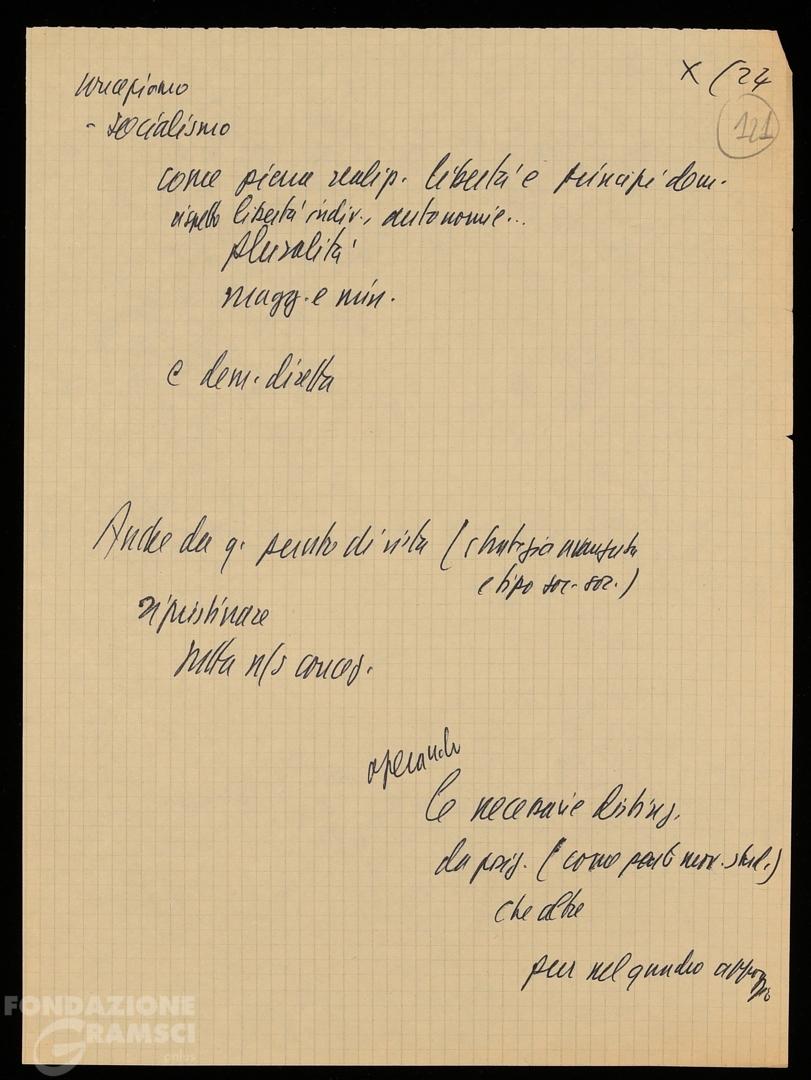 X (24
121
concepiamo
- socialismo
come piena realizz. libertà e principi dem.
rispetto libertà indiv., autonomie...
pluralità
magg. e min.
e dem. diretta
Anche da q. punto di vista (strategia avanzata
e tipo soc. soc.)
ripristinare
tutta n/s concez.
operando
le necessarie disting.
da posiz. (come parti mov. stud.)
che altre
pur nel quadro appoggio
FONDAZIONE
GRAMSCI
onlus